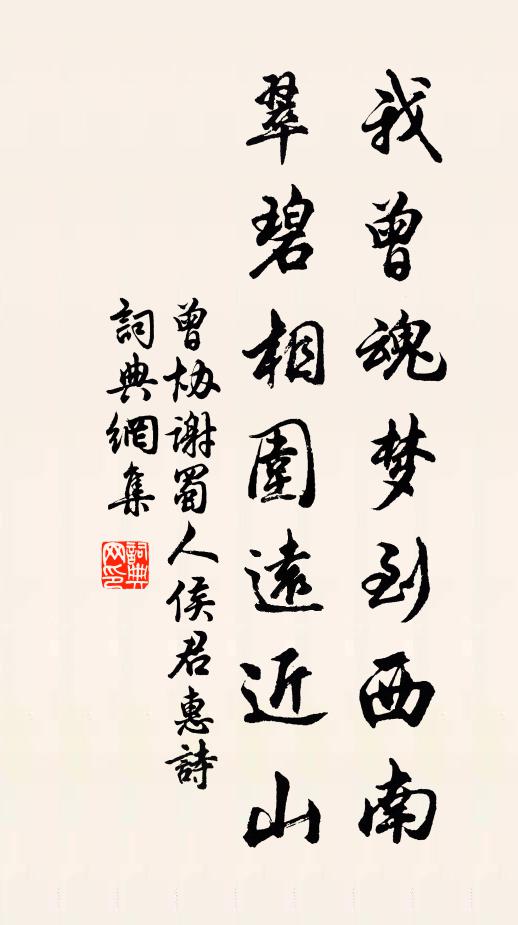 我曾魂梦到西南
翠碧相圍遠近山
曾协謝蜀人侯君惠詩
詞典網集
詞典网印